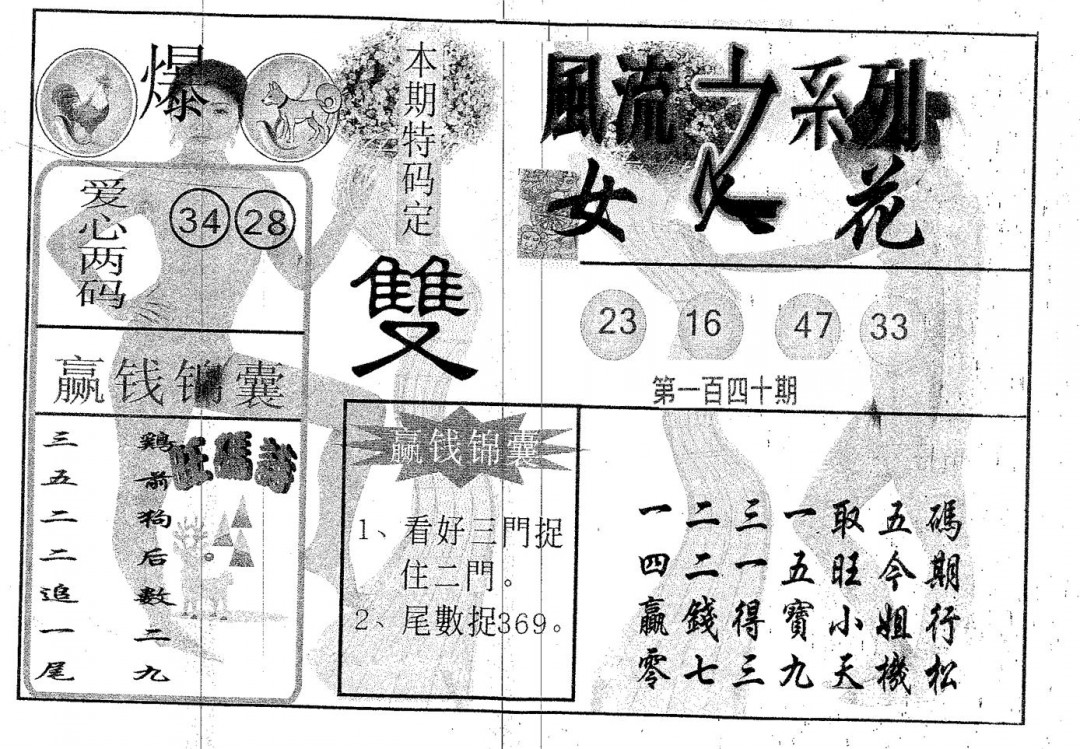 爆
爱心两码
34 28
赢钱锦囊
旺碼詩
鷄前狗后數二九
三五二二追一尾
本期特码定
雙
赢钱锦囊
1、看好三門捉
住二門。
2、尾數捉369。
風流之系列
女人花
23 16 47 33
第一百四十期
一二三一取五碼
四二一五旺今期
赢錢得寶小姐行
零七三九天機松